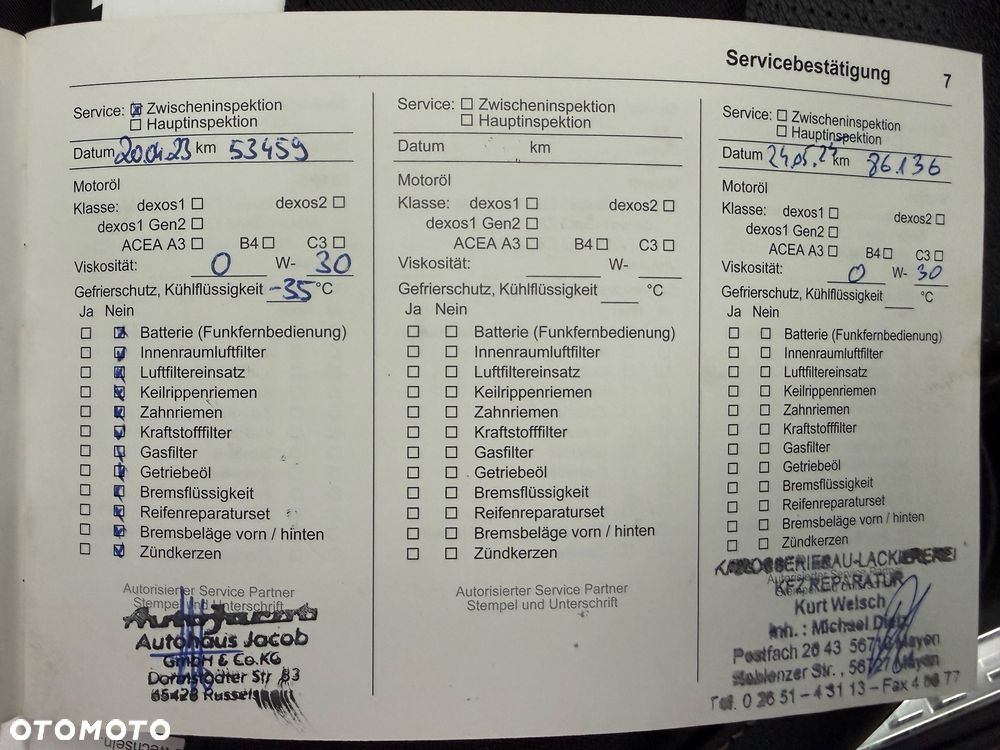 Servicebestätigung 7
Service: ☒ Zwischeninspektion
☐ Hauptinspektion
Datum 20.04.23 km 53459
Motoröl
Klasse: dexos1 ☐ dexos2 ☐
dexos1 Gen2 ☐
ACEA A3 ☐ B4 ☐ C3 ☐
Viskosität: 0 W- 30
Gefrierschutz, Kühlflüssigkeit -35 °C
Ja Nein
☐ ☒ Batterie (Funkfernbedienung)
☐ ☒ Innenraumluftfilter
☐ ☒ Luftfiltereinsatz
☐ ☒ Keilrippenriemen
☐ ☒ Zahnriemen
☐ ☒ Kraftstofffilter
☐ ☒ Gasfilter
☐ ☒ Getriebeöl
☐ ☒ Bremsflüssigkeit
☐ ☒ Reifenreparaturset
☐ ☒ Bremsbeläge vorn / hinten
☐ ☒ Zündkerzen
Autorisierter Service Partner
Stempel und Unterschrift
Auto Jacob
Autohaus Jacob
GmbH & Co.KG
Darmstädter Str 83
65428 Russels
Service: ☐ Zwischeninspektion
☐ Hauptinspektion
Datum km
Motoröl
Klasse: dexos1 ☐ dexos2 ☐
dexos1 Gen2 ☐
ACEA A3 ☐ B4 ☐ C3 ☐
Viskosität: W-
Gefrierschutz, Kühlflüssigkeit °C
Ja Nein
☐ ☐ Batterie (Funkfernbedienung)
☐ ☐ Innenraumluftfilter
☐ ☐ Luftfiltereinsatz
☐ ☐ Keilrippenriemen
☐ ☐ Zahnriemen
☐ ☐ Kraftstofffilter
☐ ☐ Gasfilter
☐ ☐ Getriebeöl
☐ ☐ Bremsflüssigkeit
☐ ☐ Reifenreparaturset
☐ ☐ Bremsbeläge vorn / hinten
☐ ☐ Zündkerzen
Autorisierter Service Partner
Stempel und Unterschrift
Service: ☐ Zwischeninspektion
☐ Hauptinspektion
Datum 24.05.24 km 86.136
Motoröl
Klasse: dexos1 ☐ dexos2 ☐
dexos1 Gen2 ☐
ACEA A3 ☐ B4 ☐ C3 ☐
Viskosität: 0 W- 30
Gefrierschutz, Kühlflüssigkeit °C
Ja Nein
☐ ☐ Batterie (Funkfernbedienung)
☐ ☐ Innenraumluftfilter
☐ ☐ Luftfiltereinsatz
☐ ☐ Keilrippenriemen
☐ ☐ Zahnriemen
☐ ☐ Kraftstofffilter
☐ ☐ Gasfilter
☐ ☐ Getriebeöl
☐ ☐ Bremsflüssigkeit
☐ ☐ Reifenreparaturset
☐ ☐ Bremsbeläge vorn / hinten
☐ ☐ Zündkerzen
Autorisierter Service Partner
KAROSSERIEBAU-LACKIEREREI
KFZ REPARATUR
Kurt Welsch
Inh. : Michael
Postfach 20 43 Mayen
Koblenzer Str., 56727 Mayen
Tel. 0 26 51 - 4 31 13 - Fax
OTOMOTO